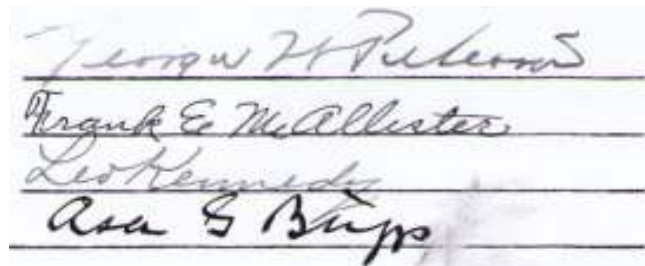 George H Peterson
Frank E McAllister
Leo Kennedy
Asa G Bupp